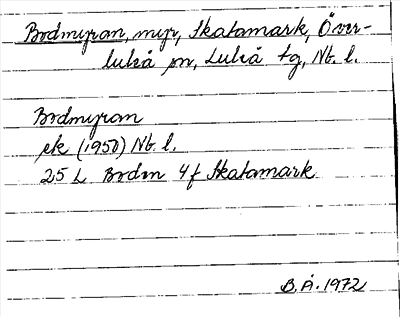 Bodmyran, myr, Skatamark, Över-
luleå sn, Luleå tg, Nb. l.
Bodmyran
ek (1950) Nb. l.
25 L Boden 4f Skatamark
B.Å. 1972